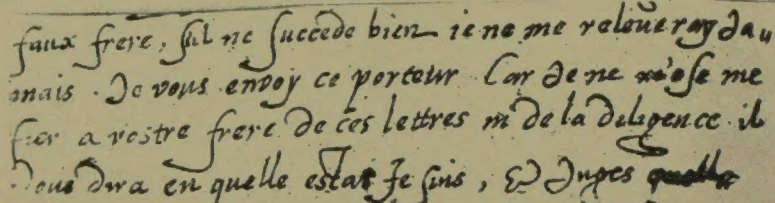 faux frere, sil ne succede bien ie ne me releueray dau
mais. Je vous envoy ce porteur Car Je ne m'ose me
fier a vostre frere de ces lettres ni de la diligence il
vous dira en quelle estat Je suis, & Juges quelle